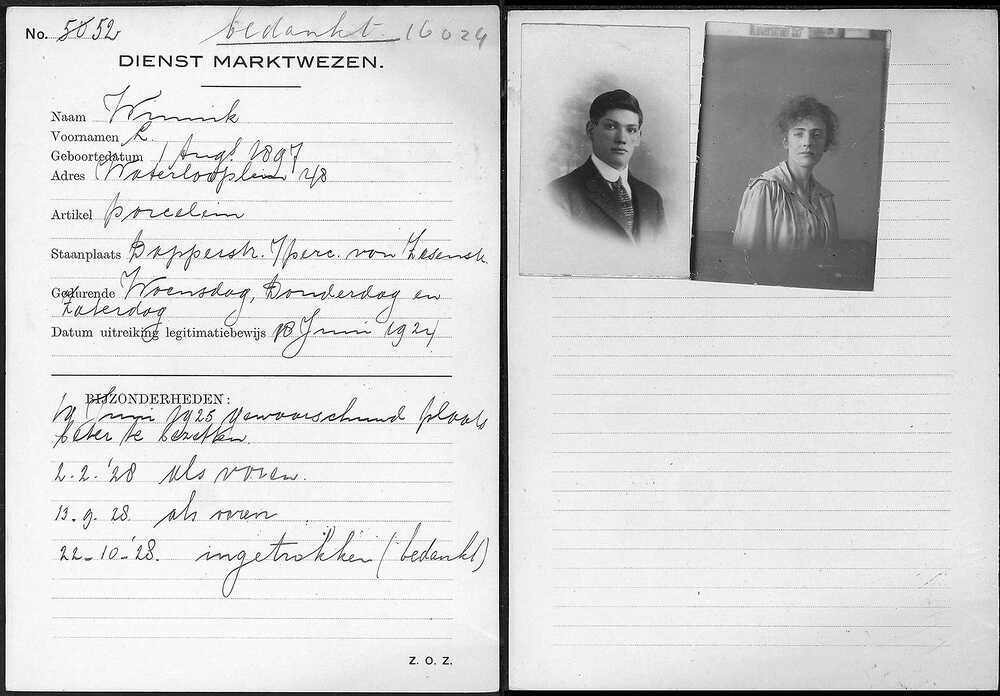 No. 5052 bedankt 16024
DIENST MARKTWEZEN.
Naam Winnik
Voornamen L.
Geboortedatum 1 Augs. 1897
Adres Waterlooplein 48
Artikel porcelein
Staanplaats Dapperstr. Iperc. von Zesenstr.
Gedurende Woensdag, Donderdag en
Zaterdag
Datum uitreiking legitimatiebewijs 18 Juni 1924
BIJZONDERHEDEN:
Juni 1925 gewaarschuwd plaats
beter te bezetten.
2-2-'28 als voren.
13-9-28 als voren
22-10-'28. ingetrokken (bedankt)
Z. O. Z.